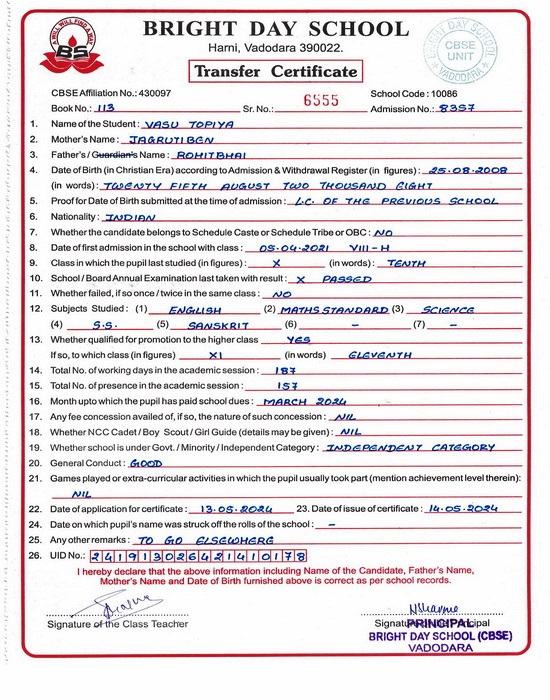 A WILL WILL FIND A WAY
BS
BRIGHT DAY SCHOOL
Harni, Vadodara 390022.
Transfer Certificate
BRIGHT DAY SCHOOL
CBSE
UNIT
VADODARA
CBSE Affiliation No.: 430097 School Code : 10086
Book No.: 113 Sr. No.: 6555 Admission No.: 8357
1. Name of the Student : VASU TOPIYA
2. Mother's Name : JAGRUTIBEN
3. Father's / Guardian's Name : ROHITBHAI
4. Date of Birth (in Christian Era) according to Admission & Withdrawal Register (in figures) : 25.08.2008
(in words) : TWENTY FIFTH AUGUST TWO THOUSAND EIGHT
5. Proof for Date of Birth submitted at the time of admission : L.C. OF THE PREVIOUS SCHOOL
6. Nationality : INDIAN
7. Whether the candidate belongs to Schedule Caste or Schedule Tribe or OBC : NO
8. Date of first admission in the school with class : 05.04.2021 VIII-H
9. Class in which the pupil last studied (in figures) : X (in words) : TENTH
10. School / Board Annual Examination last taken with result : X PASSED
11. Whether failed, if so once / twice in the same class : NO
12. Subjects Studied : (1) ENGLISH (2) MATHS STANDARD (3) SCIENCE
(4) S.S. (5) SANSKRIT (6) – (7) –
13. Whether qualified for promotion to the higher class YES
If so, to which class (in figures) XI (in words) ELEVENTH
14. Total No. of working days in the academic session : 187
15. Total No. of presence in the academic session : 157
16. Month upto which the pupil has paid school dues : MARCH 2024
17. Any fee concession availed of, if so, the nature of such concession : NIL
18. Whether NCC Cadet / Boy Scout / Girl Guide (details may be given) : NIL
19. Whether school is under Govt. / Minority / Independent Category : INDEPENDENT CATEGORY
20. General Conduct : GOOD
21. Games played or extra-curricular activities in which the pupil usually took part (mention achievement level therein):
NIL
22. Date of application for certificate : 13.05.2024 23. Date of issue of certificate : 14.05.2024
24. Date on which pupil's name was struck off the rolls of the school : –
25. Any other remarks : TO GO ELSEWHERE
26. UID No.: 241913026421410178
I hereby declare that the above information including Name of the Candidate, Father's Name,
Mother's Name and Date of Birth furnished above is correct as per school records.
Signature of the Class Teacher Signature of the Principal
PRINCIPAL
BRIGHT DAY SCHOOL (CBSE)
VADODARA